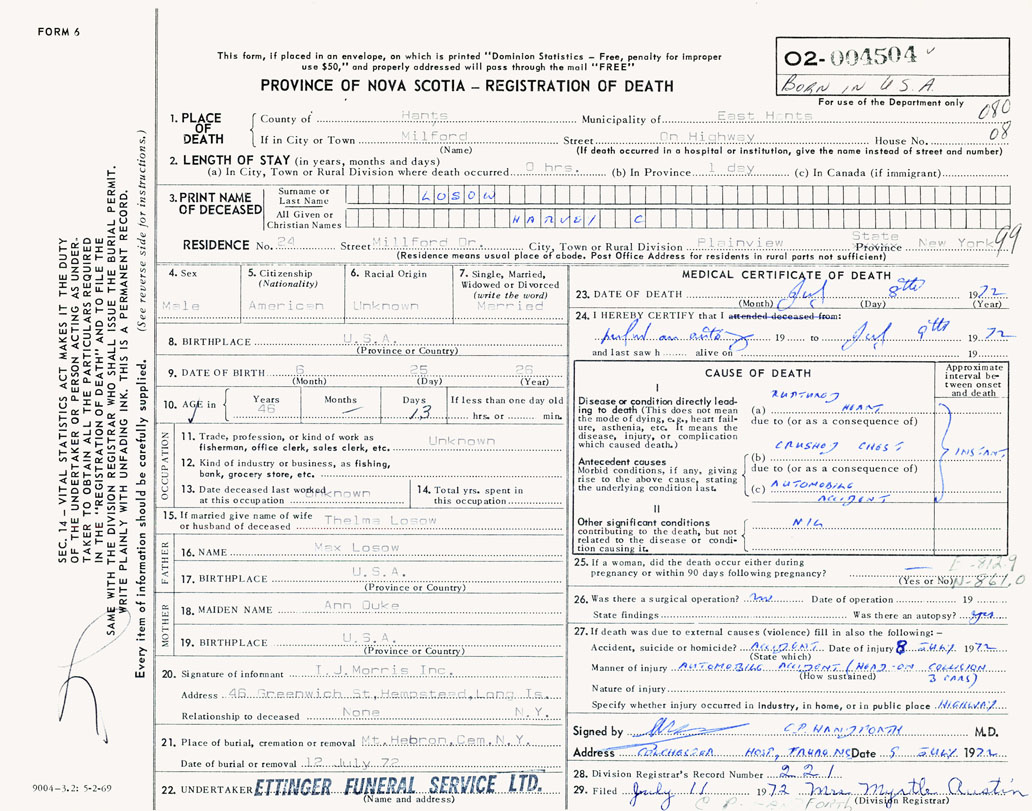 FORM 6
This form, if placed in an envelope, on which is printed "Dominion Statistics – Free, penalty for improper
use $50," and properly addressed will pass through the mail "FREE"
PROVINCE OF NOVA SCOTIA – REGISTRATION OF DEATH
02-004504
BORN IN U.S.A.
For use of the Department only
080
08
1. PLACE OF DEATH
County of Hants Municipality of East Hants
If in City or Town Milford Street On Highway House No.
(Name) (If death occurred in a hospital or institution, give the name instead of street and number)
2. LENGTH OF STAY (in years, months and days)
(a) In City, Town or Rural Division where death occurred 0 hrs. (b) In Province 1 day (c) In Canada (if immigrant)
3. PRINT NAME OF DECEASED
Surname or Last Name LOSOW
All Given or Christian Names HARVEY C
RESIDENCE No. 24 Street Millford Dr. City, Town or Rural Division Plainview State Province New York 99
(Residence means usual place of abode. Post Office Address for residents in rural parts not sufficient)
4. Sex
Male
5. Citizenship
(Nationality)
American
6. Racial Origin
Unknown
7. Single, Married,
Widowed or Divorced
(write the word)
Married
8. BIRTHPLACE U.S.A.
(Province or Country)
9. DATE OF BIRTH 6 25 26
(Month) (Day) (Year)
10. AGE in
Years 46
Months –
Days 13
If less than one day old
hrs. or min.
OCCUPATION
11. Trade, profession, or kind of work as
fisherman, office clerk, sales clerk, etc. Unknown
12. Kind of industry or business, as fishing,
bank, grocery store, etc.
13. Date deceased last worked
at this occupation Unknown
14. Total yrs. spent in
this occupation
15. If married give name of wife
or husband of deceased Thelma Losow
FATHER
16. NAME Max Losow
17. BIRTHPLACE U.S.A.
(Province or Country)
MOTHER
18. MAIDEN NAME Ann Duke
19. BIRTHPLACE U.S.A.
(Province or Country)
20. Signature of informant I.J.Morris Inc.
Address 46 Greenwich St,Hempstead,Long Is.
Relationship to deceased None N.Y.
21. Place of burial, cremation or removal Mt.Hebron Cem.N.Y.
Date of burial or removal 12 July 72
22. UNDERTAKER ETTINGER FUNERAL SERVICE LTD.
(Name and address)
MEDICAL CERTIFICATE OF DEATH
23. DATE OF DEATH July 8th 1972
(Month) (Day) (Year)
24. I HEREBY CERTIFY that I attended deceased from:
19 to July 9th 1972
and last saw h alive on 19
CAUSE OF DEATH
Approximate
interval be-
tween onset
and death
I
Disease or condition directly lead-
ing to death (This does not mean
the mode of dying, e.g., heart fail-
ure, asthenia, etc. It means the
disease, injury, or complication
which caused death.)
RUPTURED
(a) HEART
due to (or as a consequence of)
Antecedent causes
Morbid conditions, if any, giving
rise to the above cause, stating
the underlying condition last.
CRUSHED CHEST
(b)
due to (or as a consequence of)
(c) AUTOMOBILE
ACCIDENT
INSTANT
II
Other significant conditions
contributing to the death, but not
related to the disease or condi-
tion causing it.
NIL
25. If a woman, did the death occur either during
pregnancy or within 90 days following pregnancy?
(Yes or No)
E-812.9
N-861.0
26. Was there a surgical operation? no Date of operation 19
State findings Was there an autopsy? yes
27. If death was due to external causes (violence) fill in also the following: –
Accident, suicide or homicide? ACCIDENT Date of injury 8 JULY 1972
(State which)
Manner of injury AUTOMOBILE ACCIDENT (HEAD-ON COLLISION
(How sustained) 3 CARS)
Nature of injury
Specify whether injury occurred in industry, in home, or in public place HIGHWAY
Signed by C.P. HANDFORTH M.D.
Address COLCHESTER HOSP, TRURO NS Date 9 JULY 1972
28. Division Registrar's Record Number 221
29. Filed July 11 1972 Mrs Myrtle Austin
(Division Registrar)
SEC. 14 – VITAL STATISTICS ACT MAKES IT THE DUTY
OF THE UNDERTAKER OR PERSON ACTING AS UNDER-
TAKER TO OBTAIN ALL THE PARTICULARS REQUIRED
IN THE "REGISTRATION OF DEATH" AND TO FILE THE
SAME WITH THE DIVISION REGISTRAR WHO SHALL ISSUE THE BURIAL PERMIT.
WRITE PLAINLY WITH UNFADING INK. THIS IS A PERMANENT RECORD.
Every item of information should be carefully supplied. (See reverse side for instructions.)
9004-3.2: 5-2-69